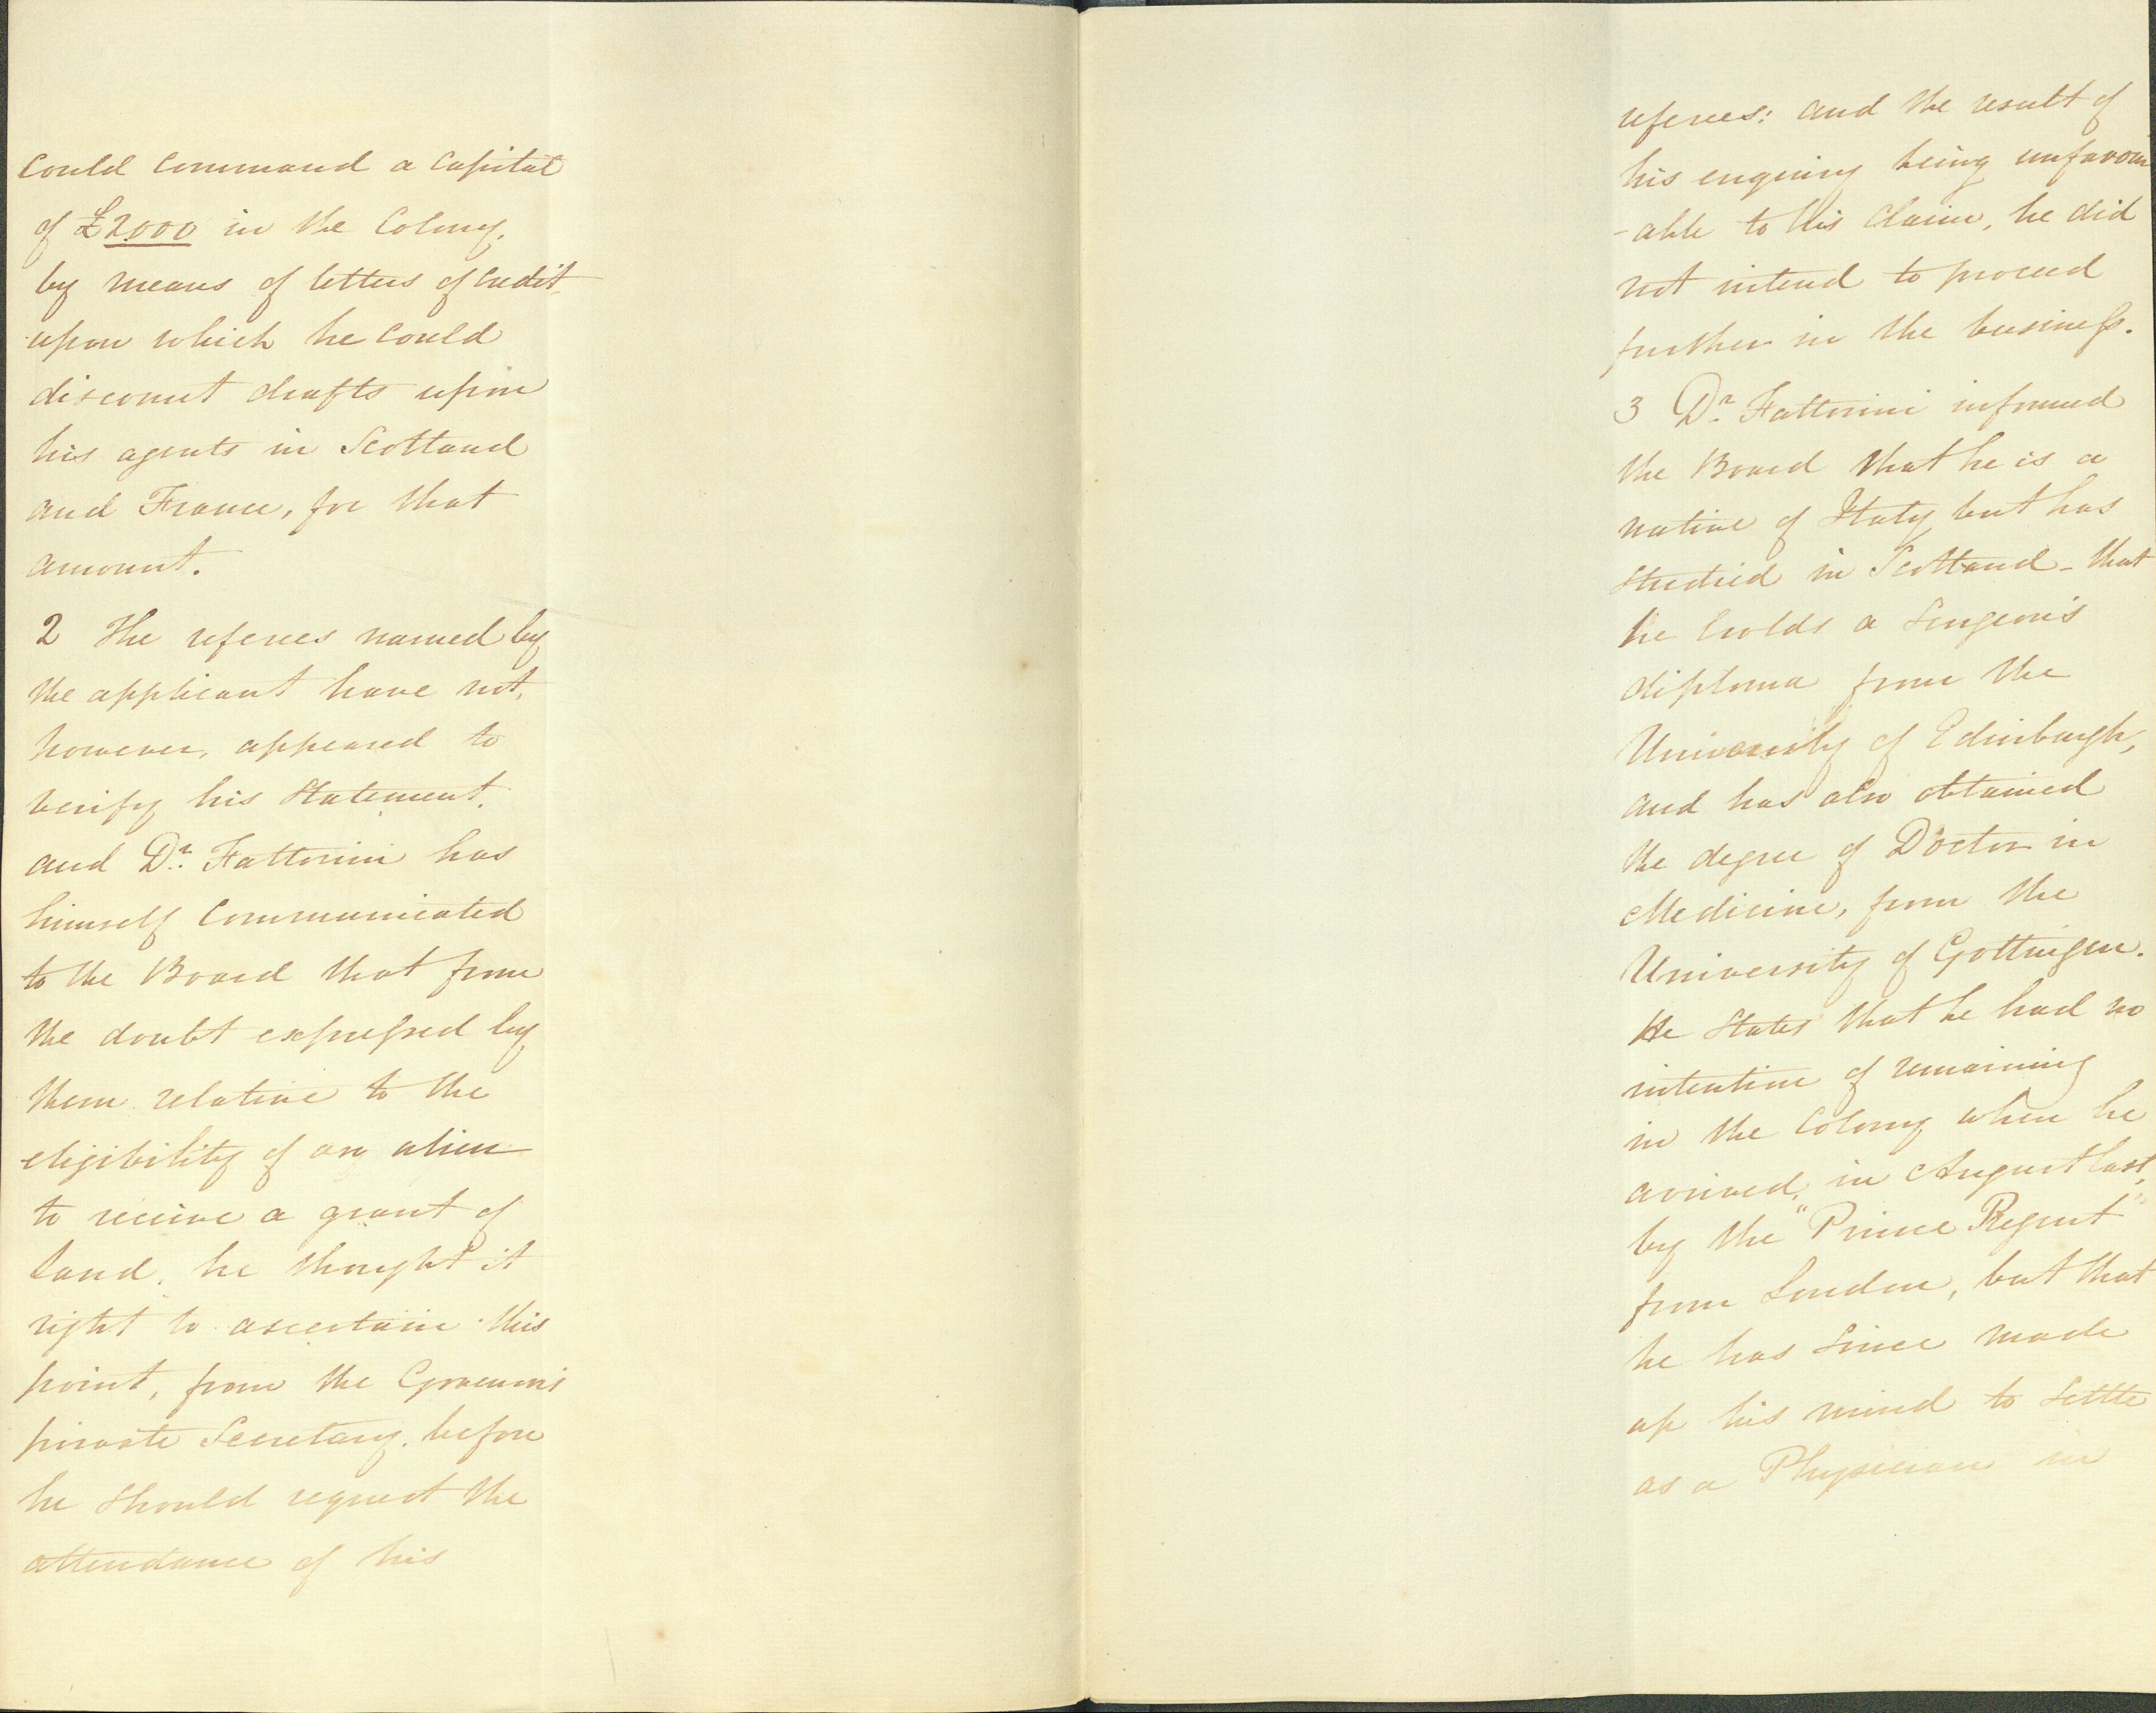 could command a capital
of £2000 in the Colony,
by means of letters of credit
upon which he could
discount drafts upon
his agents in Scotland
and France, for that
amount.
2 The referees named by
the applicant have not,
however, appeared to
verify his Statement,
and Dr. Fattorini has
himself communicated
to the Board that from
the doubt expressed by
them relative to the
eligibility of an alien
to receive a grant of
land, he thought it
right to ascertain this
point, from the Governor's
private Secretary, before
he should request the
attendance of his
referees: and the result of
his enquiry being unfavour
-able to his claim, he did
not intend to proceed
further in the business.
3 Dr. Fattorini informed
the Board that he is a
native of Italy but has
studied in Scotland - that
he holds a Surgeon's
diploma from the
University of Edinburgh,
and has also obtained
the degree of Doctor in
Medicine, from the
University of Gottingen.
He States that he had no
intention of remaining
in the Colony when he
arrived, in August last,
by the "Prince Regent"
from London, but that
he has since made
up his mind to settle
as a Physician in